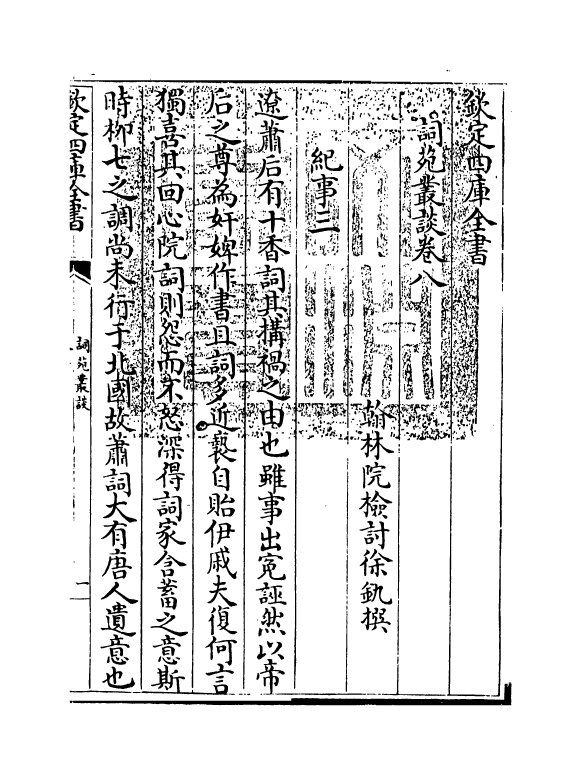 欽定四庫全書
詞苑叢談卷八
翰林院檢討徐釚撰
紀事三
遼蕭后有十香詞其搆禍之由也雖事出寃誣然以帝
后之尊為奸婢作書且詞多近䙝自貽伊戚夫復何言
獨喜其回心院詞則怨而不怒深得詞家含蓄之意斯
時柳七之調尚未行于北國故蕭詞大有唐人遺意也
欽定四庫全書
詞苑叢談
一